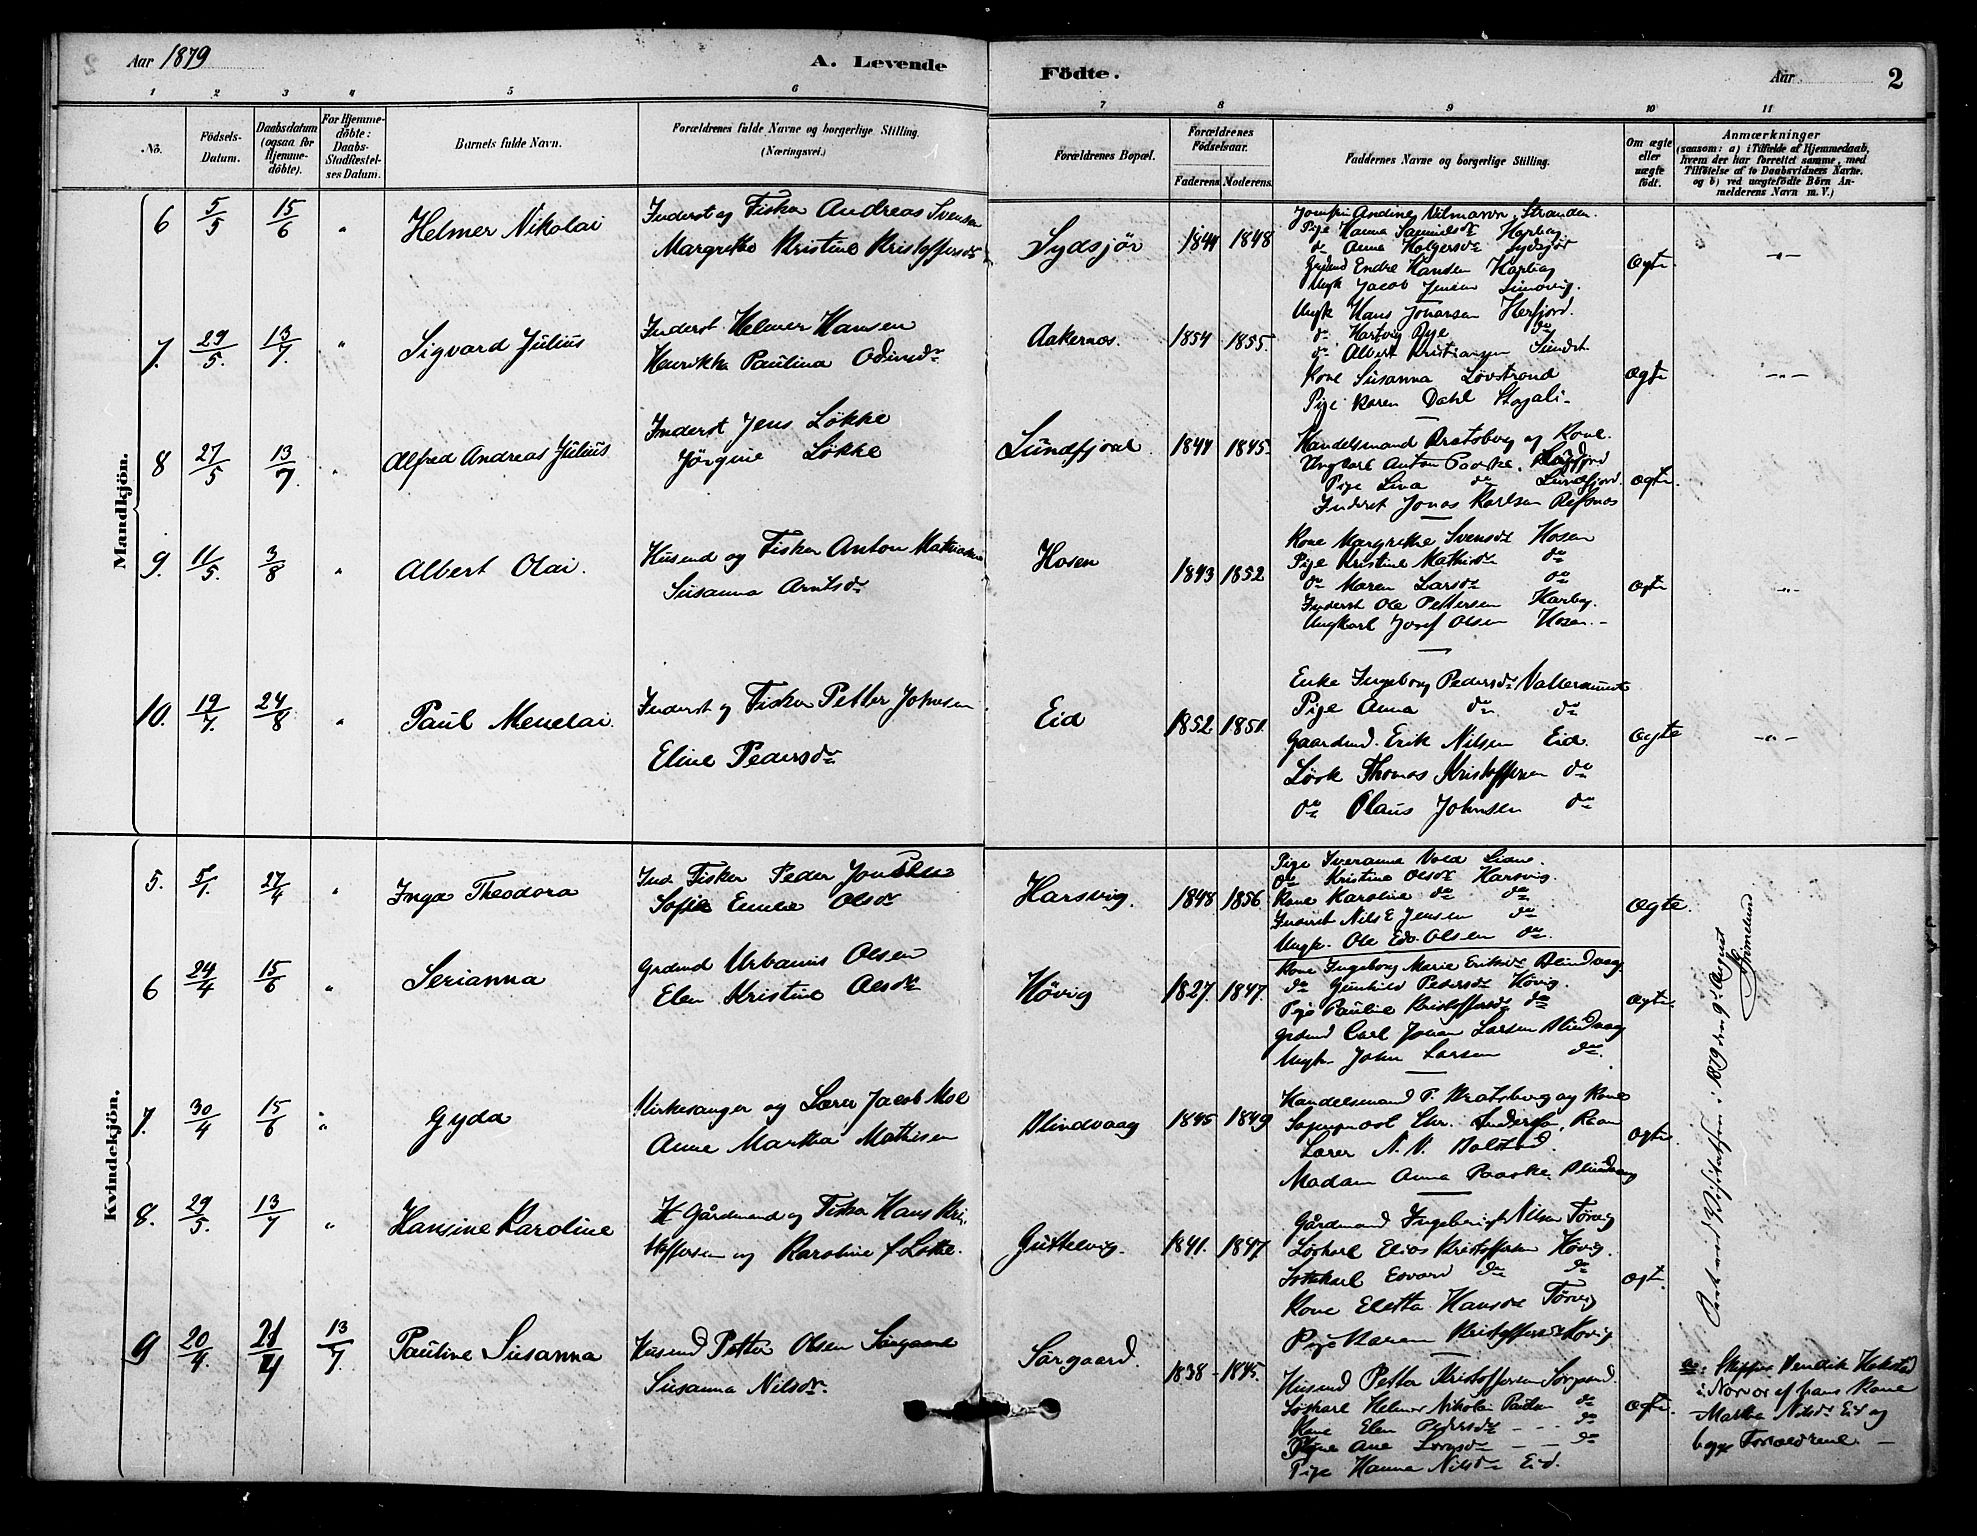 Aar 1879
A. Levende
Födte.
Aar
2
1 2 3 4 5 6 7 8 9 10 11
No.
Födsels-Datum.
Daabsdatum (ogsaa for Hjemme-döbte).
For Hjemme-döbte: Daabs-Stadfæstel-ses Datum.
Barnets fulde Navn.
Forældrenes fulde Navne og borgerlige Stilling.
(Næringsvei.)
Forældrenes Bopæl.
Forældrenes Födselsaar.
Faderens. Moderens.
Faddernes Navne og borgerlige Stilling.
Om ægte eller uægte födt.
Anmærkninger
(saasom: a) i Tilfælde af Hjemmedaab,
hvem der har forrettet samme, med
Tilföielse af to Daabsvidners Navne.
og b) ved uægtefödte Börn An-
melderens Navn m. V.)
Mandkjön.
6 5/5 15/6 " Helmer Nikolai
Inderst og Fisker Andreas Svensen
Margrethe Kristine Kristoffersdr
Sydsjør 1844 1848
Jomfru Andine Vilmann, Stranden.
Pige Hanna Samuelsdr Harbag
do Anna Holgersdr Sydsjør
Grdmd Endre Hansen Harbag
Ungk Jacob Jensen
Ægte -"-
7. 29/5. 13/7. " Sigvard Julius
Inderst Helmer Hansen
Henrikka Paulina Odinsdr
Aakernes. 1854 1855.
Ungk Hans Johansen Herfjord.
do. Hartvig do
do. Albert Kristiansen
Kone Susanna Løvstrand
Pige Karen Dahl
Ægte -"-
8 27/5 13/7 " Alfred Andreas Julius
Inderst Jens Løkke
Jørgine Løkke
Lundfjord. 1844 1845.
Handelsmand Kratsborg og Kone.
Ungkarl Anton Paaske,
Pige Lina do Lundfjord.
Inderst Jonas Karlsen Refsnæs
Ægte.
9. 11/5. 3/8 " Albert Olai.
Husmd og Fisker Anton Mathiassen
Susanna Arntsdr
Hosen 1843 1852
Kone Margrethe Svensdr Hosen
Pige Kristine Mathisdr do
do Maren Larsdr do
Inderst Ole Pettersen Harbag.
Ungkarl Josef Olsen Hosen. -
Ægte -"-
10. 19/7. 24/8 " Paul Menelai.
Inderst og Fisker Petter Johnsen
Eline Pedersdr
Eid 1852 1851.
Enke Ingeborg Pedersdr Vallersund
Pige Anna do do
Gaardmd. Erik Nilsen Eid.
Løsk Thomas Kristoffersen do
do Olaus Johnsen do
Ægte -"-
Kvindekjön.
5. 5/1. 27/4 " Inga Theodora
Ind Fisker Peder
Sofie Emilie Olsdr
Harsvig. 1848 1856
Pige Vold Liane.
do Kristine Olsdr Harsvig.
Kone Karoline do do
Inderst Nils E Jensen do
Ungk. Ole Edv. Olsen do.
Ægte.
6 24/4 15/6 " Serianna
Grdmd Urbanus Olsen
Elen Kristine Olsdr
Høvig 1827. 1847.
Kone Ingeborg Marie Eriksdr Blindvaag
do Gunhild Pedersdr Høvig.
Pige Pauline Kristoffersdr do
Grdmd Carl Johan Larsen Blindvaag
Ungk. John Larsen do.
Ægte
7. 30/4 15/6 " Gyda
Kirkesanger og Lærer Jacob Moe
Anne Martha Mathisen
Blindvaag 1845 1849
Handelsmand P. Kratsborg og Kone
Chr.
Lærer N. N.
Madam Anna Paaske Blindvaag
Ægte
8. 29/5. 13/7 " Hansine Karoline
Gårdmand og Fisker Hans Kri-
stoffersen og Karoline f. Løkke.
Guttelvig. 1841. 1847.
Gårdmand Ingebrigt Nilsen Tørvig
Løskarl Elias Kristoffersen Høvig.
Løskarl Edvard do do
Kone Eletta Hansdr Tørvig
Pige Maren Kristoffersdr Høvig
Ægt.
9 20/4. 21/4 13/7 Pauline Susanna
Husmd Petter Olsen Sørgaard
Susanna Nilsdr.
Sørgaard. 1838 - 1845.
Husmd Petter Kristoffersen Sørgaard.
Løskarl Helmer Nikolai Paulsen do
Kone Elen Pedersdr - - do
Pige Ane Larsdr - - do
Pige Hanna Nilsdr Eid.
Ægte.
a: Skipper Hendrik Hokstad
i Nærvær af hans Kone
Martha Nilsdr Eid og
begge Forældrene. -
Seet ved Visitatsen i 1879 den 9de August
Grimelund